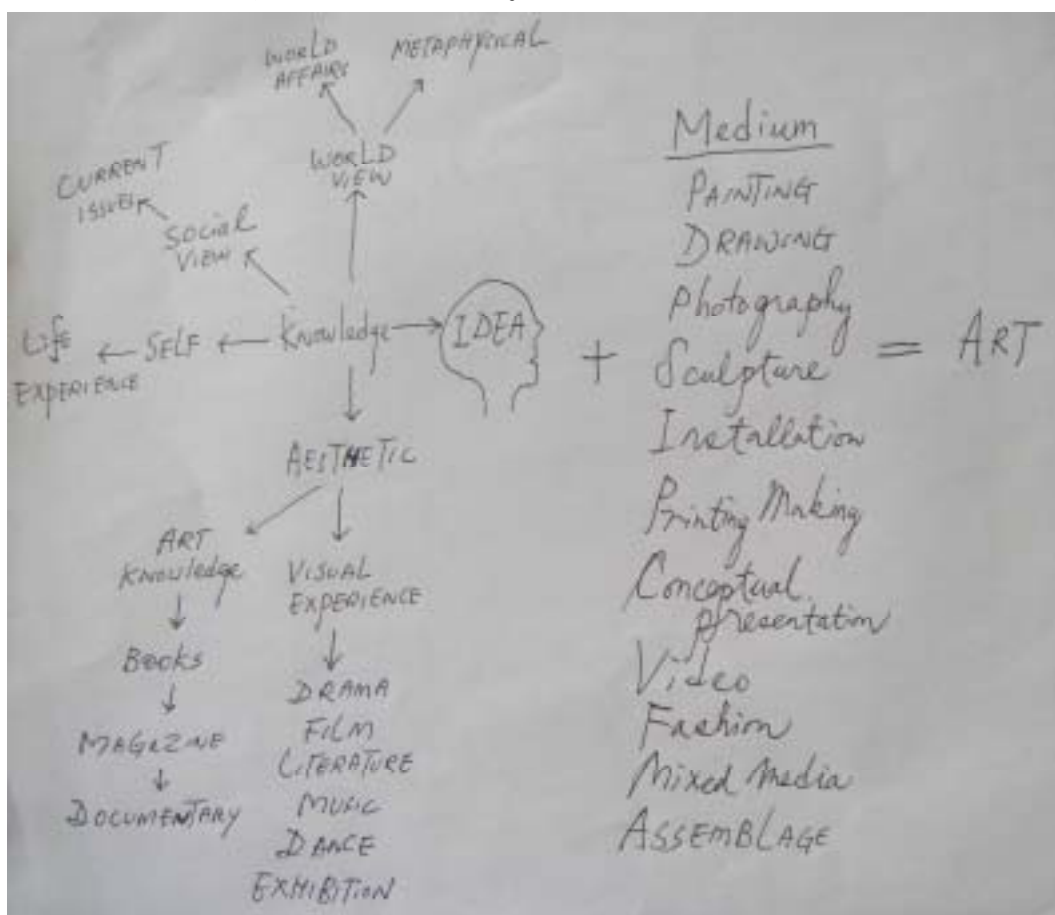 WORLD
AFFAIRS
METAPHYSICAL
WORLD
VIEW
CURRENT
ISSUES
SOCIAL
VIEW
Life
EXPERIENCE
SELF
Knowledge
IDEA
+
AESTHETIC
ART
Knowledge
Books
MAGAZINE
DOCUMENTARY
VISUAL
EXPERIENCE
DRAMA
FILM
LITERATURE
MUSIC
DANCE
EXHIBITION
Medium
PAINTING
DRAWING
Photography
Sculpture
Installation
Printing Making
Conceptual
presentation
Video
Fashion
Mixed Media
ASSEMBLAGE
= ART